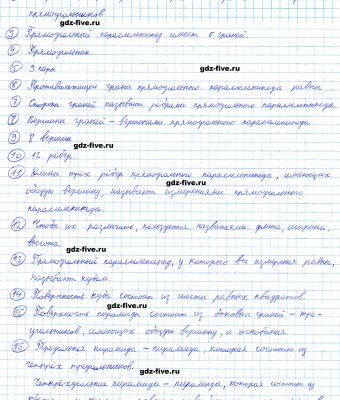 прямоугольников
gdz-five.ru
③ Прямоугольный параллелепипед имеет 6 граней.
④ Прямоугольник gdz-five.ru
⑤ 3 пары gdz-five.ru
⑥ Противолежащие грани прямоугольного параллелепипеда равны
⑦ Стороны граней называют рёбрами прямоугольного параллелепипеда.
gdz-five.ru
⑧ Вершины граней – вершинами прямоугольного параллелепипеда
⑨ 8 вершин gdz-five.ru
⑩ 12 рёбер.
⑪ Длины трёх рёбер прямоугольного параллелепипеда, имеющих
gdz-five.ru
общую вершину, называют измерениями прямоугольного
параллелепипеда.
gdz-five.ru
⑫ Чтобы их различать, пользуются названиями: длина, ширина,
высота gdz-five.ru
⑬ Прямоугольный параллелепипед, у которого все измерения равны,
называют кубом. gdz-five.ru
⑭ Поверхность куба состоит из шести равных квадратов.
gdz-five.ru
⑮ Поверхность пирамиды состоит из боковых граней – тре-
угольников, имеющих общую вершину, и основания
gdz-five.ru
⑯ Треугольная пирамида – пирамида, которая состоит из
четырёх треугольников. gdz-five.ru
Четырёхугольная пирамида – пирамида, которая состоит из